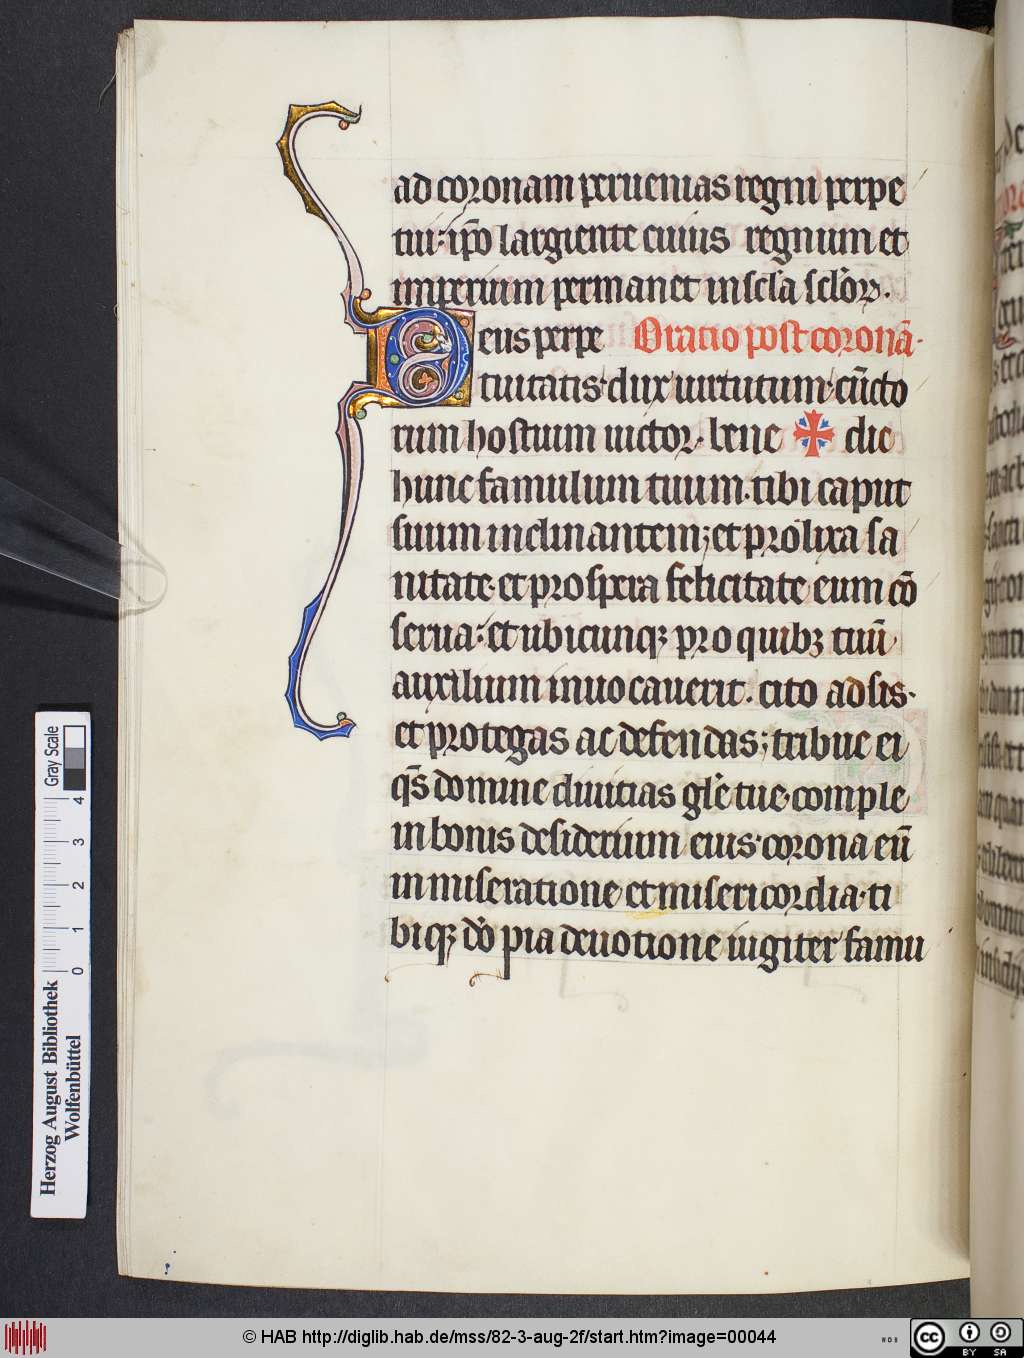 ad coronam peruenias regni perpe
tui· ip̄o largiente cuius regnum et
imperium permanet in sc̄la sc̄loꝝ.
Deus perpe Oratio post coronā·
tuitatis· dux uirtutum· cūcto
rum hostium uictor· bene ✠ dic
hunc famulum tuum· tibi caput
suum inclinantem; et prolixa sa
nitate· et prospera felicitate eum cō
serua· et ubicunqꝫ pro quibꝫ tuū
auxilium inuocauerit· cito adsis·
et protegas ac defendas; tribue ei
qs̄ domine diuitias gl̄e tue· comple
in bonis desiderium eius· corona eū
in miseratione et misericordia· ti
biqꝫ dō pia deuotione iugiter famu
Herzog August Bibliothek
Wolfenbüttel
0 1 2 3 4
Gray Scale
© HAB http://diglib.hab.de/mss/82-3-aug-2f/start.htm?image=00044
WDB
cc BY SA